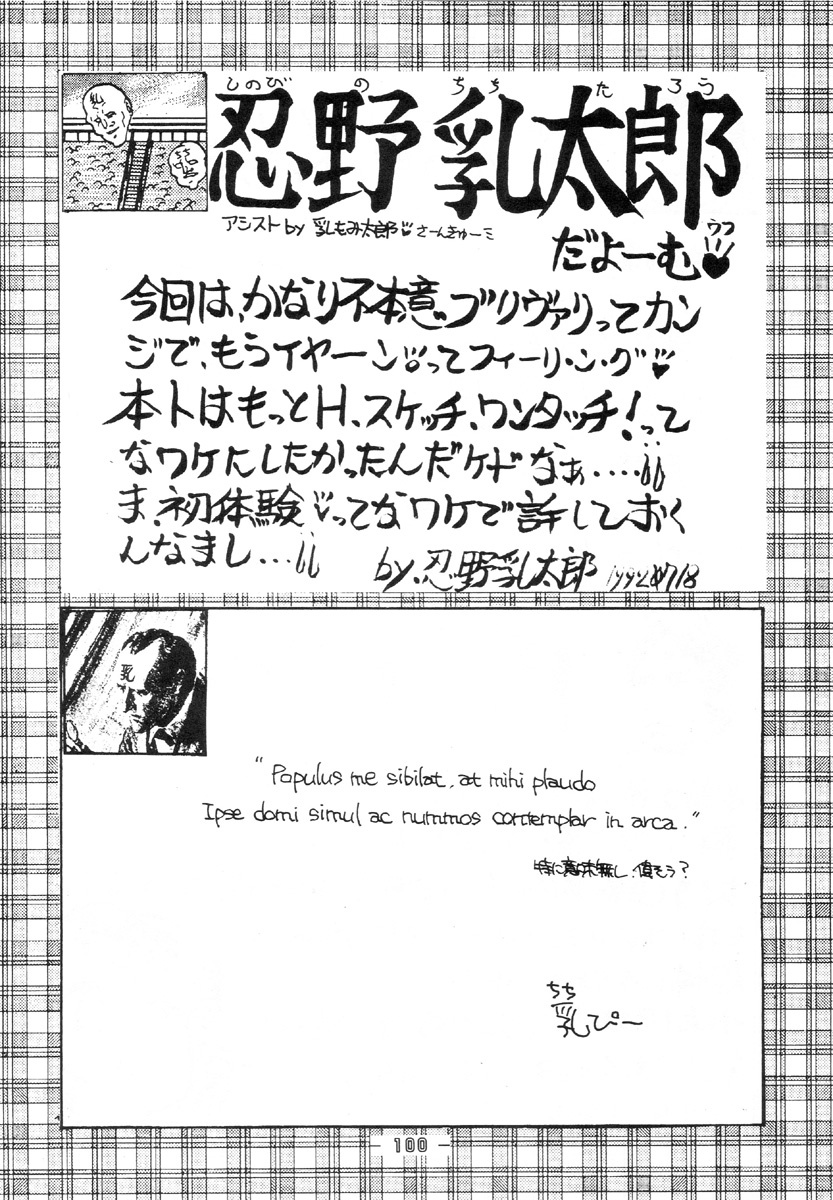 しのび の ちち た ろう
忍野 乳太郎
アシスト by 乳もみ太郎 さーんきゅーミ
だよーむ ウフ
今回は、かなり不本意。ブリヴァリってカン
ジで、もうイヤーンってフィーリ・ン・グ
本トはもっとH、スケッチ、ワンタッチ!って
なワケにしたかったんだケドなぁ....
ま、初体験ってなワケで許しておく
んなまし...
by.忍野乳太郎 1992 7/18
乳
"Populus me sibilat, at mihi plaudo
Ipse domi simul ac nummos contemplar in arca."
特に意味無し、偉そう?
ちち
乳ぴー
100